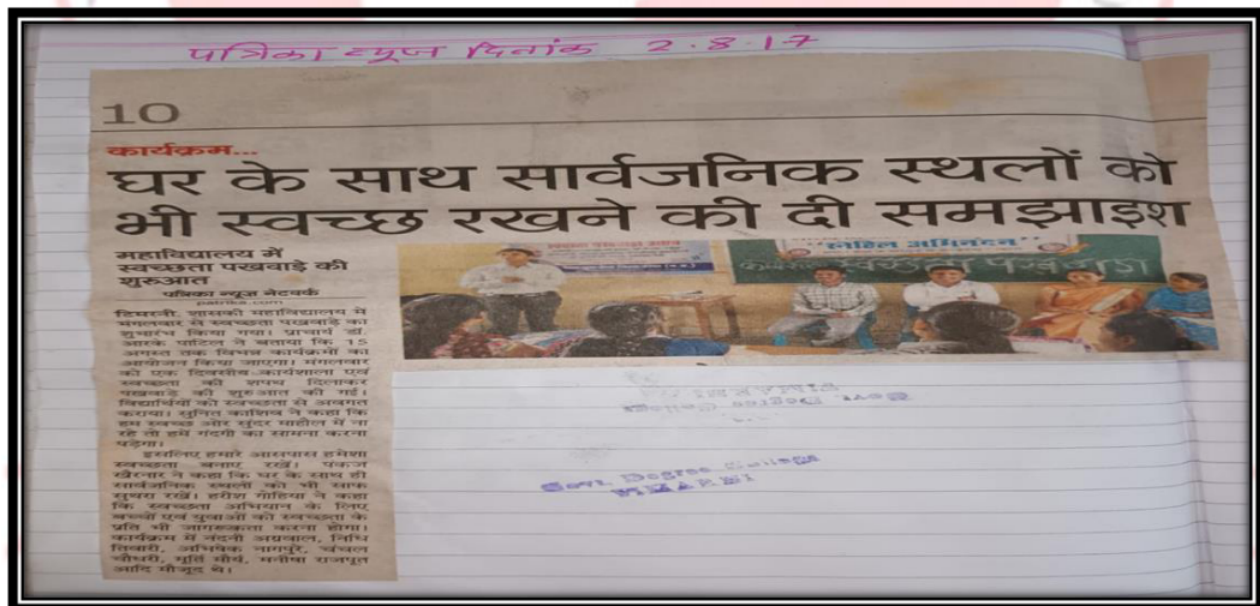 पत्रिका न्यूज दिनांक 2.8.17
10
कार्यक्रम...
घर के साथ सार्वजनिक स्थलों को
भी स्वच्छ रखने की दी समझाइश
महाविद्यालय में
स्वच्छता पखवाड़े की
शुरुआत
पत्रिका न्यूज नेटवर्क
patrika.com
टिमरनी. शासकी महाविद्यालय में
मंगलवार से स्वच्छता पखवाड़े का
शुभारंभ किया गया। प्राचार्य डॉ.
आरके पाटिल ने बताया कि 15
अगस्त तक विभिन्न कार्यक्रमों का
आयोजन किया जाएगा। मंगलवार
को एक दिवसीय कार्यशाला एवं
स्वच्छता की शपथ दिलाकर
पखवाड़े की शुरुआत की गई।
विद्यार्थियों को स्वच्छता से अवगत
कराया। सुनित काशिव ने कहा कि
हम स्वच्छ और सुंदर माहौल में ना
रहे तो हमें गंदगी का सामना करना
पड़ेगा।
इसलिए हमारे आसपास हमेशा
स्वच्छता बनाए रखें। पंकज
खैरनार ने कहा कि घर के साथ ही
सार्वजनिक स्थलों को भी साफ
सुथरा रखें। हरीश गोहिया ने कहा
कि स्वच्छता अभियान के लिए
बच्चों एवं युवाओं को स्वच्छता के
प्रति भी जागरुकता करना होगा।
कार्यक्रम में नंदनी अग्रवाल, निधि
तिवारी, अभिषेक नागपुरे, चंचल
चौधरी, मूर्ति मौर्य, मनीषा राजपूत
आदि मौजूद थे।
अभिनंदन
स्वच्छता पखवाड़ा
Govt. Degree College
Govt. Degree College